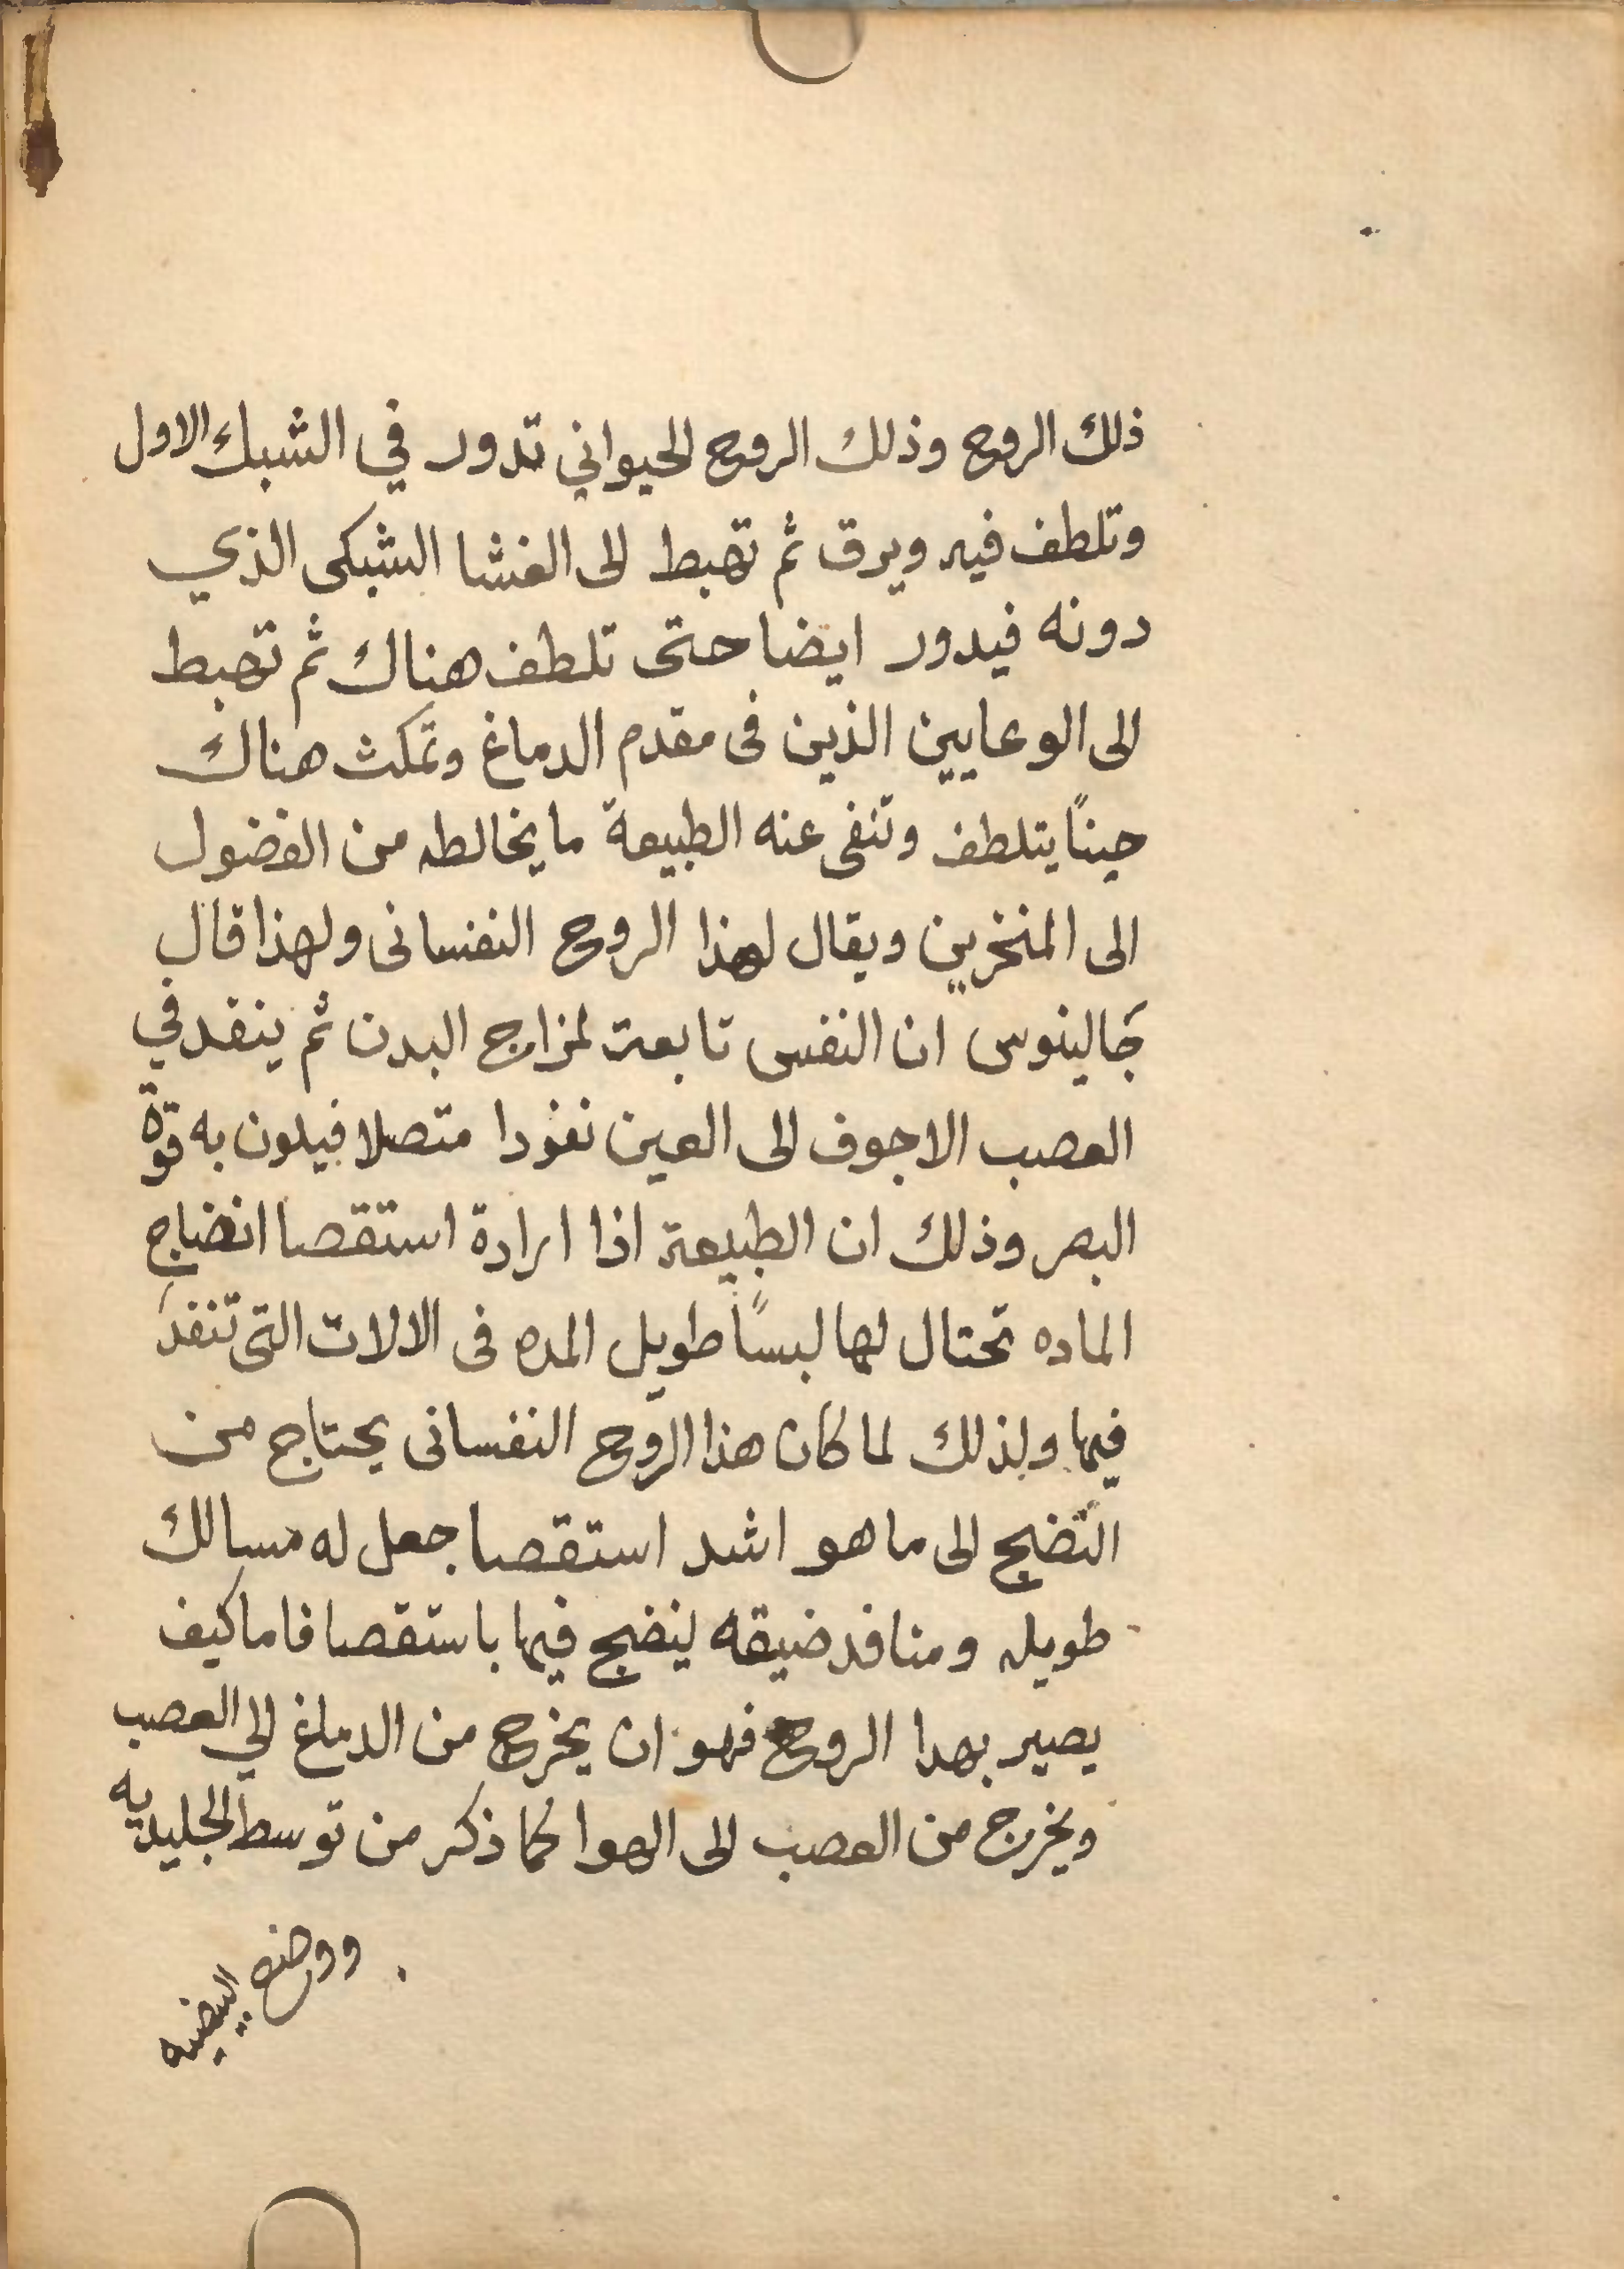 ذلك الروح وذلك الروح الحيواني تدور في الشبك الاول
وتلطف فيه ويرق ثم تهبط الى الغشا الشبكى الذي
دونه فيدور ايضا حتى تلطف هناك ثم تهبط
الى الوعايين الذين فى مقدم الدماغ وتمكث هناك
حينًا يتلطف وتنفى عنه الطبيعة ما يخالطه من الفضول
الى المنخرين ويقال لهذا الروح النفسانى ولهذا قال
جَالينوس ان النفس تابعة لمزاج البدن ثم ينفد في
العصب الاجوف الى العين نفودا متصلا فيلون به قوة
البصر وذلك ان الطبيعة اذا ارادة استقصا انضاج
الماده تحتال لها لبسًا طويل المده فى الالات التى تنفدَ
فيها ولذلك لما كان هذا الروح النفسانى يحتاج من
النضج الى ما هو اشد استقصا جعل له مسالك
طويله ومنافد ضيقه لينضج فيها باستقصا فاما كيف
يصير بهدا الروح فهو ان يخرج من الدماغ الي العصب
ويخرج من العصب الى الهوا كما ذكر من توسط الجليديه
ووضع البيضيه